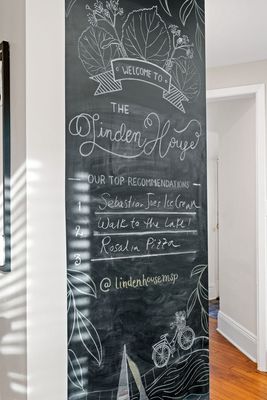 WELCOME TO
THE
Linden House
OUR TOP RECOMMENDATIONS
1 Sebastian Joes Ice Cream
2 Walk to the Lake
3 Rosalia Pizza
@lindenhousemsp